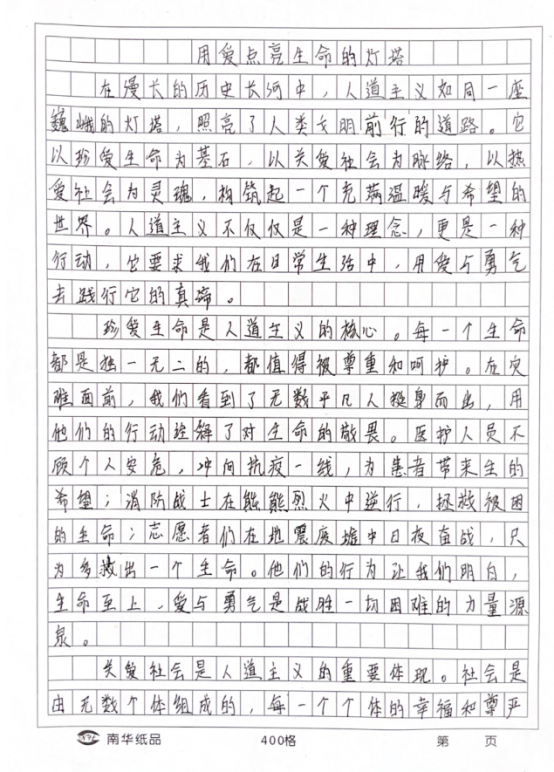 用爱点亮生命的灯塔
在漫长的历史长河中，人道主义如同一座
巍峨的灯塔，照亮了人类文明前行的道路。它
以珍爱生命为基石，以关爱社会为脉络，以热
爱社会为灵魂，构筑起一个充满温暖与希望的
世界。人道主义不仅仅是一种理念，更是一种
行动，它要求我们在日常生活中，用爱与勇气
去践行它的真谛。
珍爱生命是人道主义的核心。每一个生命
都是独一无二的，都值得被尊重和呵护。在灾
难面前，我们看到了无数平凡人挺身而出，用
他们的行动诠释了对生命的敬畏。医护人员不
顾个人安危，冲向抗疫一线，为患者带来生的
希望；消防战士在熊熊烈火中逆行，拯救被困
的生命；志愿者们在地震废墟中日夜奋战，只
为多救出一个生命。他们的行为让我们明白，
生命至上，爱与勇气是战胜一切困难的力量源
泉。
关爱社会是人道主义的重要体现。社会是
由无数个体组成的，每一个个体的幸福和尊严
南华纸品 400格 第 页